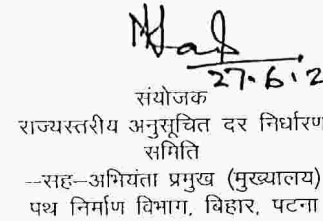 27.6.2
संयोजक
राज्यस्तरीय अनुसूचित दर निर्धारण
समिति
--सह–अभियंता प्रमुख (मुख्यालय)
पथ निर्माण विभाग, बिहार, पटना